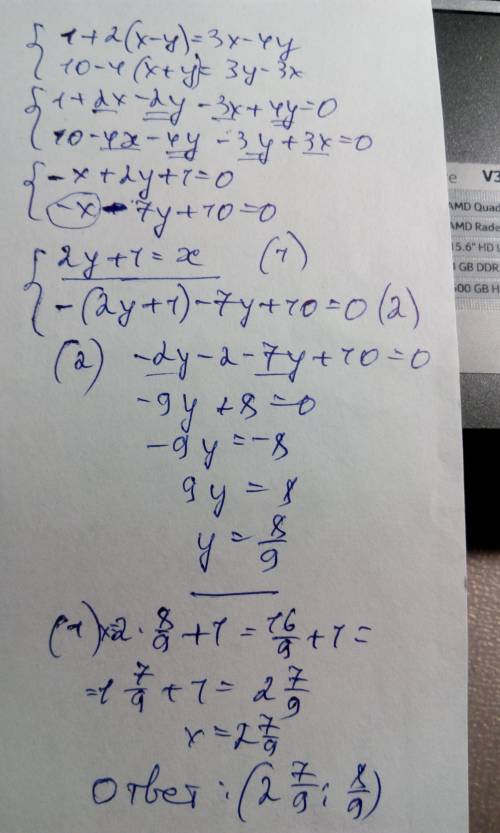 { 1+2(x-y)=3x-4y
10-4(x+y)=3y-3x
{ 1+2x-2y-3x+4y=0
10-4x-4y-3y+3x=0
{ -x+2y+1=0
-x-7y+10=0
{ 2y+1=x (1)
-(2y+1)-7y+10=0 (2)
(2) -2y-2-7y+10=0
-9y+8=0
-9y=-8
9y=8
y=8/9
(1) x=2·8/9+1=16/9+1=
=1 7/9+1=2 7/9
x=2 7/9
Ответ:(2 7/9; 8/9)
V3
AMD Quad
AMD Rade
15.6" HD L
GB DDR
500 GB H